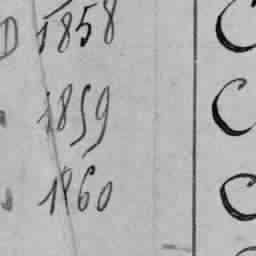 D 1858 C
1859 C
1860 C